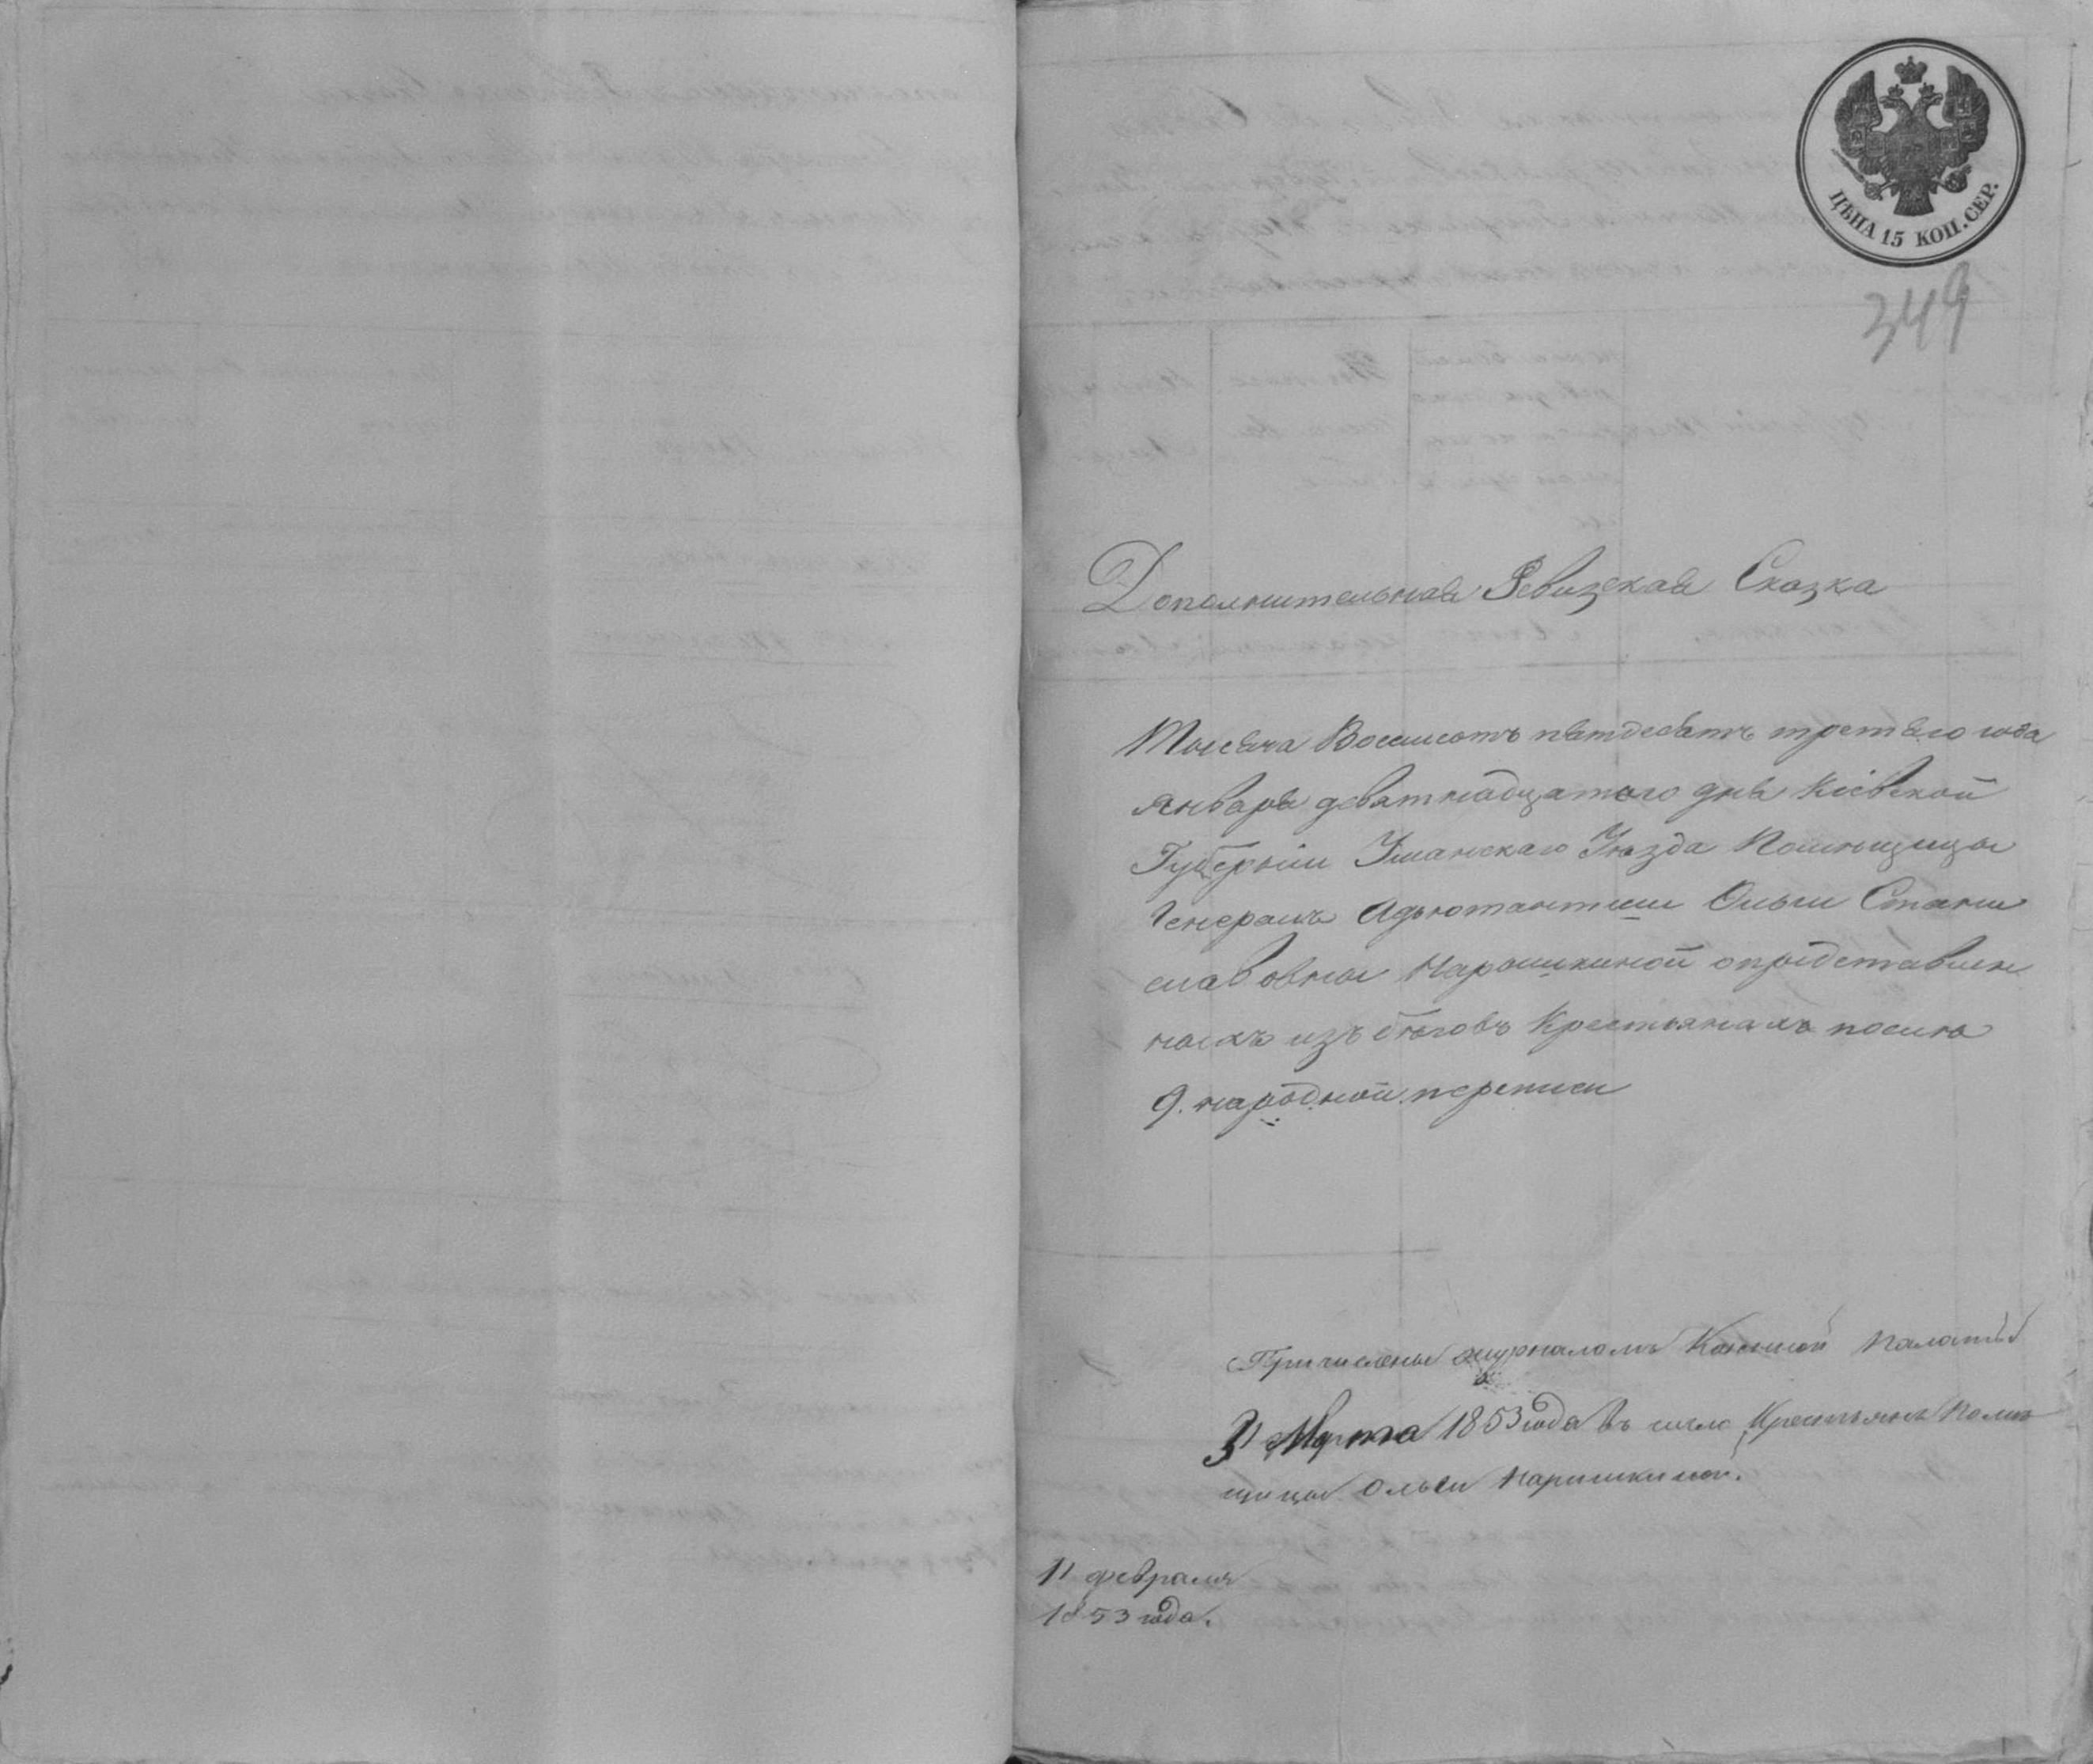 ЦѢНА 15 КОП. СЕР.
349
Дополнительная Ревизская Сказка
Тысяча Восемсотъ пятдесятъ третяго года
Января девятнадцатого дня Кіевской
Губерніи Уманскаго Уѣзда Помѣщицы
Генералъ Адьютантши Ольги Стани
славовны Нарышкиной опредставлен
ныхъ изъ бѣговъ Крестьянахъ послѣ
9. народной переписи
Причислены журналомъ Казенной Палаты
31 Марта 1853 года въ число Крестьянъ Помѣ
щицы Ольги Наришкиной.
11 февраля
1853 года.